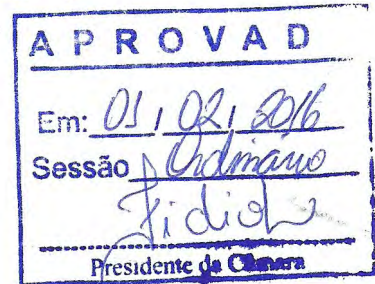 APROVAD
Em: 01, 02, 2016
Sessão Ordinário
Presidente da Câmara